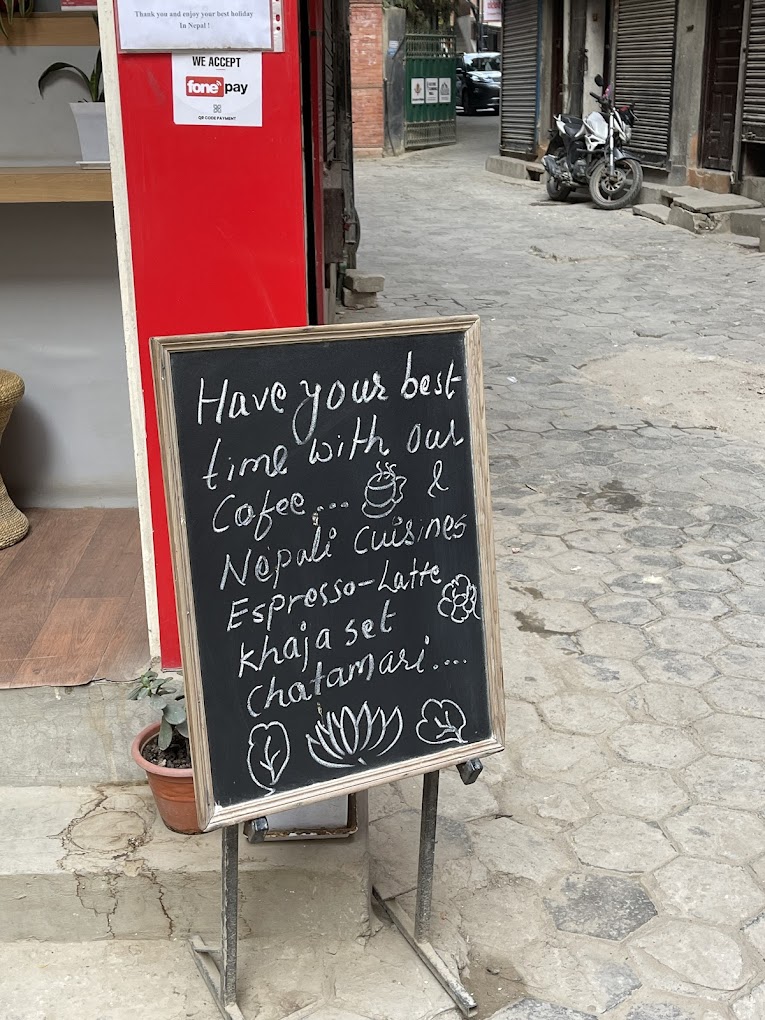 Thank you and enjoy your best holiday
In Nepal !
WE ACCEPT
fone pay
QR CODE PAYMENT
Have your best
time with our
Cofee... &
Nepali cuisines
Espresso-Latte
khaja set
Chatamari....